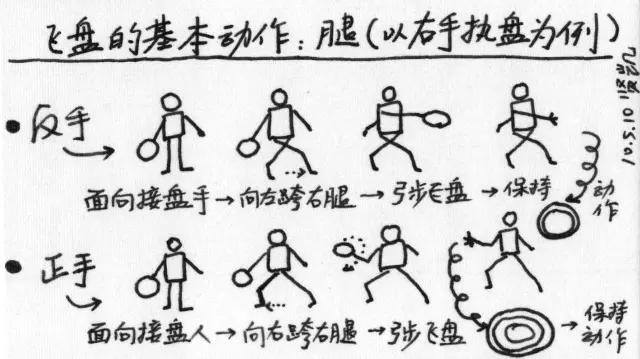 飞盘的基本动作：腿（以右手执盘为例）
反手
面向接盘手→向左跨右腿→弓步飞盘→保持动作
正手
面向接盘人→向右跨右腿→弓步飞盘→保持动作
10.5.10